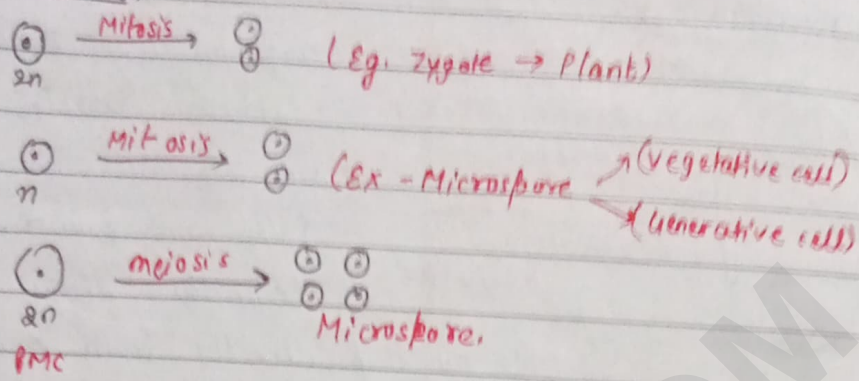 Mitosis
2n
(Eg. Zygote → Plant)
Mitosis
n
(Ex - Microspore
(vegetative cell)
(Generative cell)
meiosis
2n
PMC
Microspore.